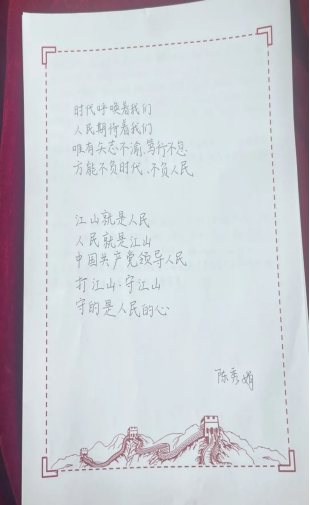 时代呼唤着我们
人民期待着我们
唯有矢志不渝、笃行不怠
方能不负时代、不负人民
江山就是人民
人民就是江山
中国共产党领导人民
打江山、守江山
守的是人民的心
陈秀娟